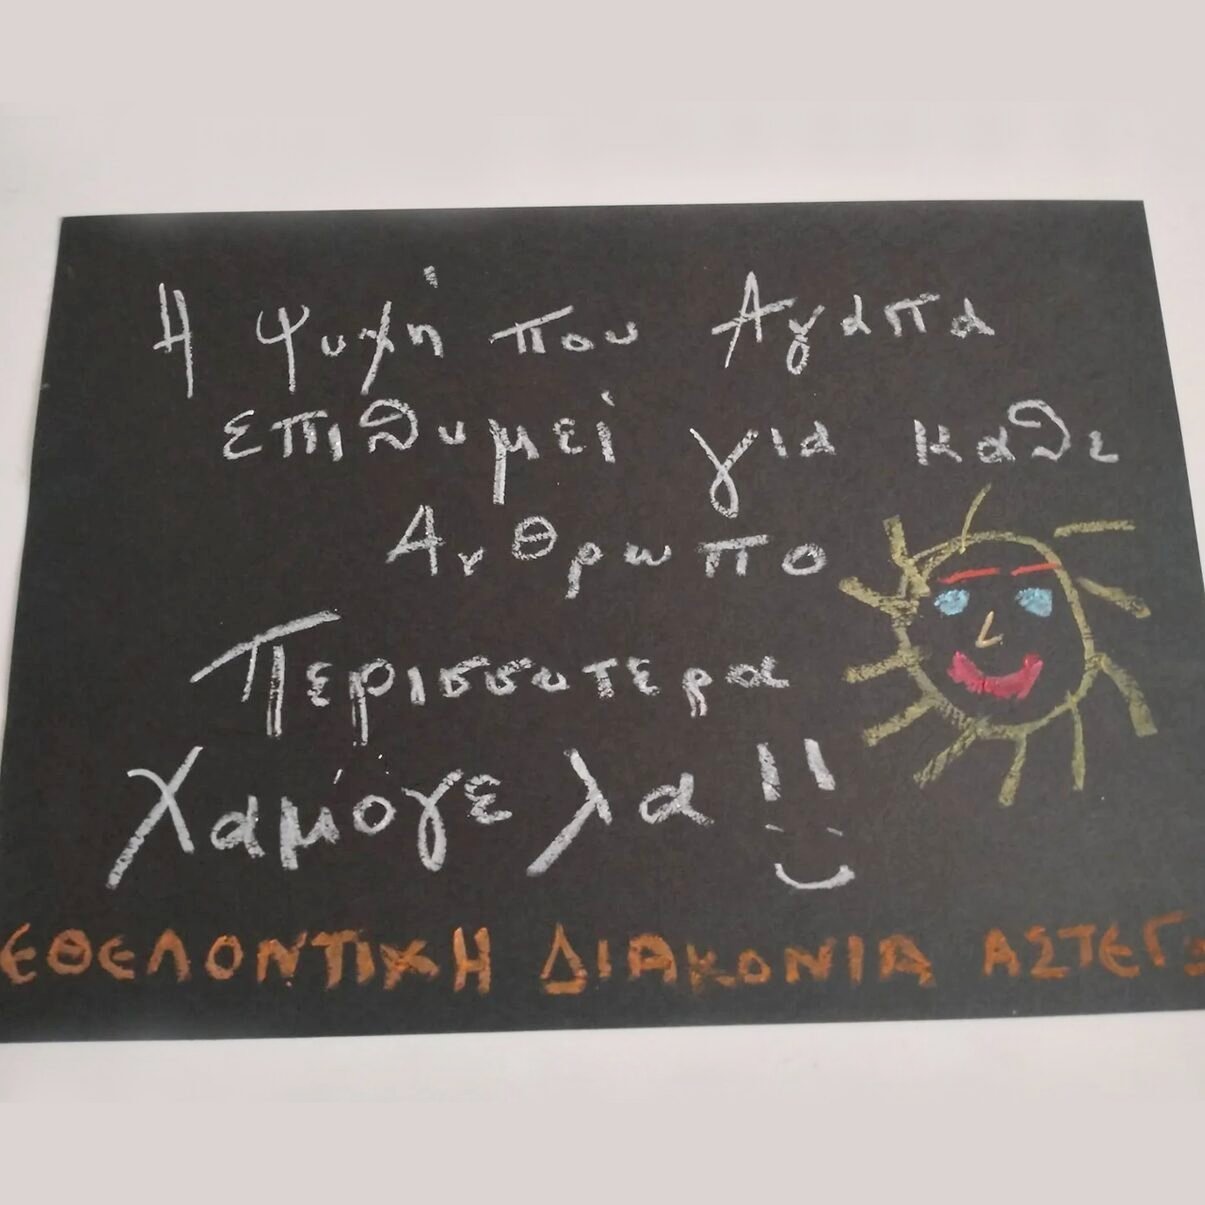 Η ψυχή που Αγαπα
επιθυμεί για καθε
Ανθρωπο
Περισσοτερα
Χαμόγελα !!
ΕΘΕΛΟΝΤΙΚΗ ΔΙΑΚΟΝΙΑ ΑΣΤΕΓ